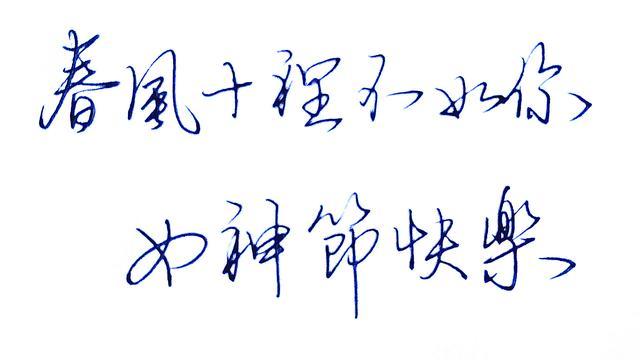 春風十裡不如你
女神節快樂